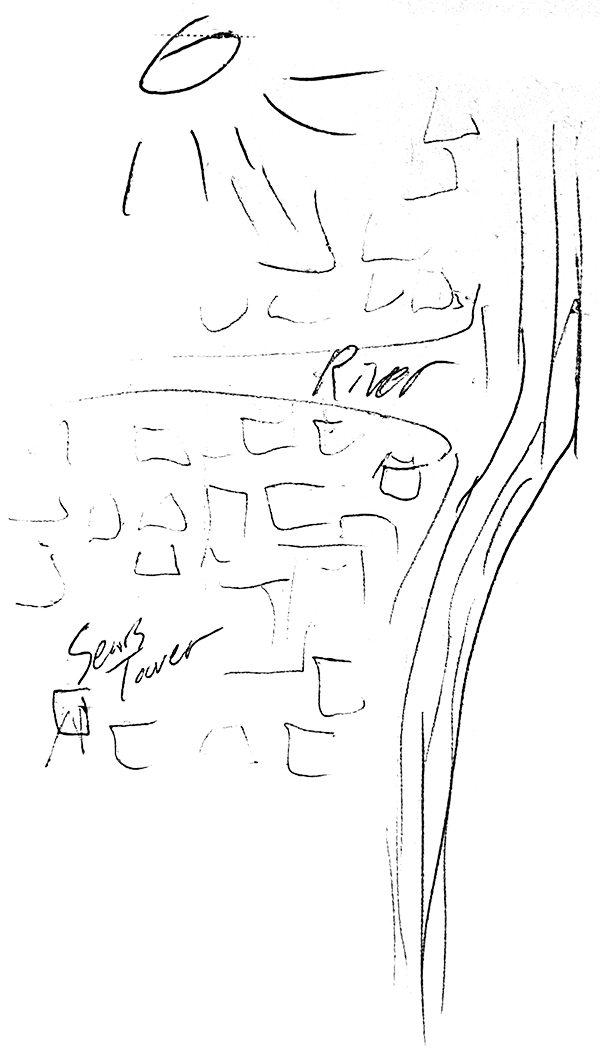 River
Sears
Tower